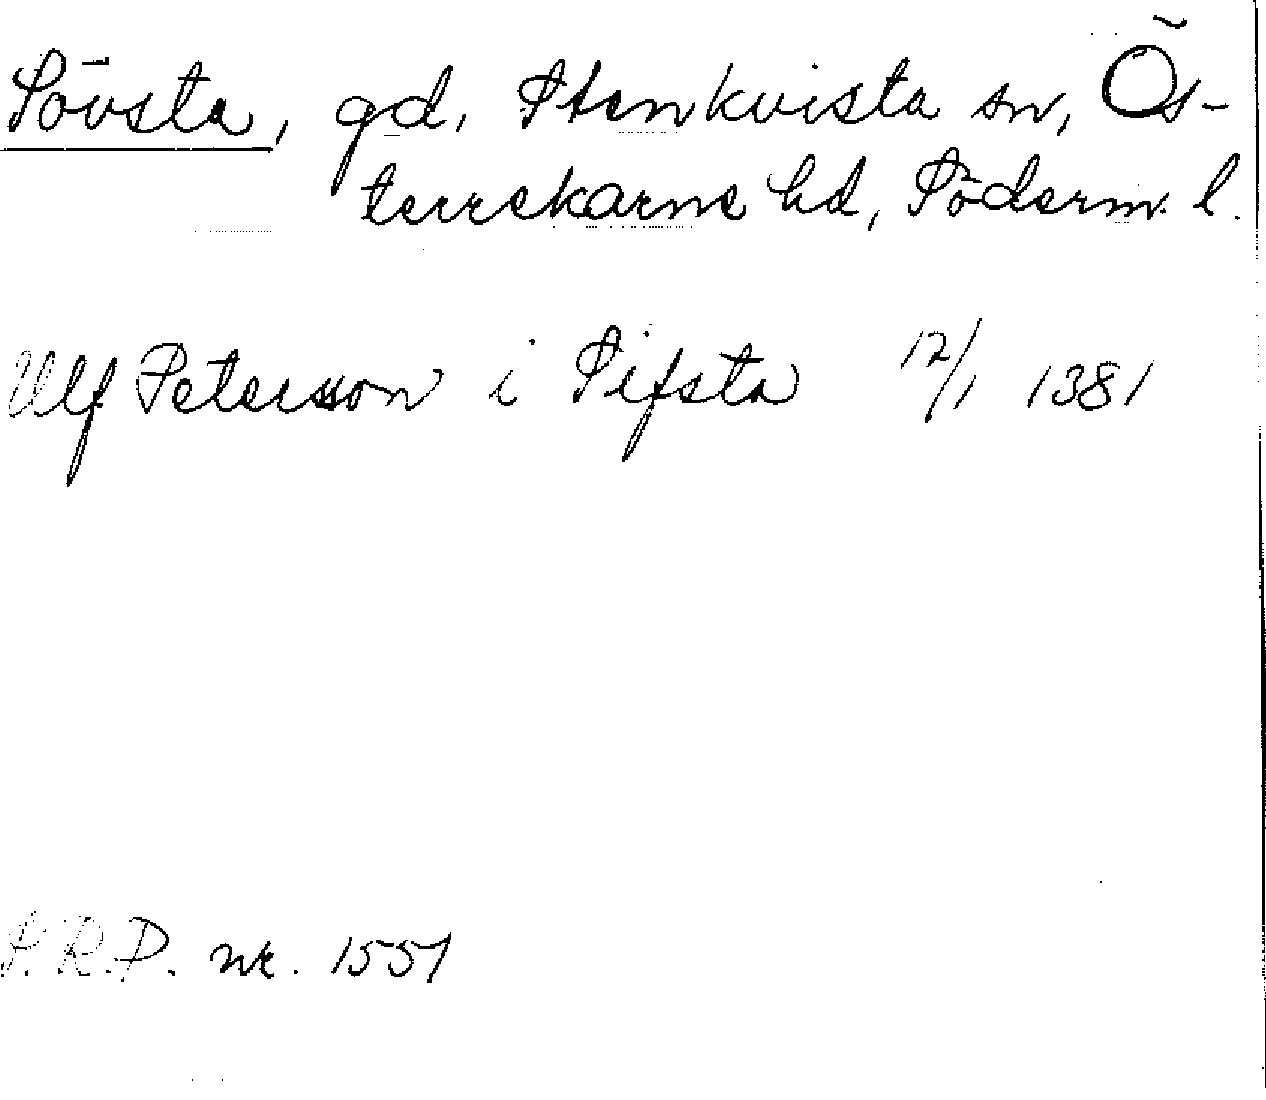 Sövsta, gd, Stenkvista sn, Ös-
terrekarne hd, Söderm. l.
Ulf Petersson i Sifsta 12/1 1381
S.R.P. nr. 1551